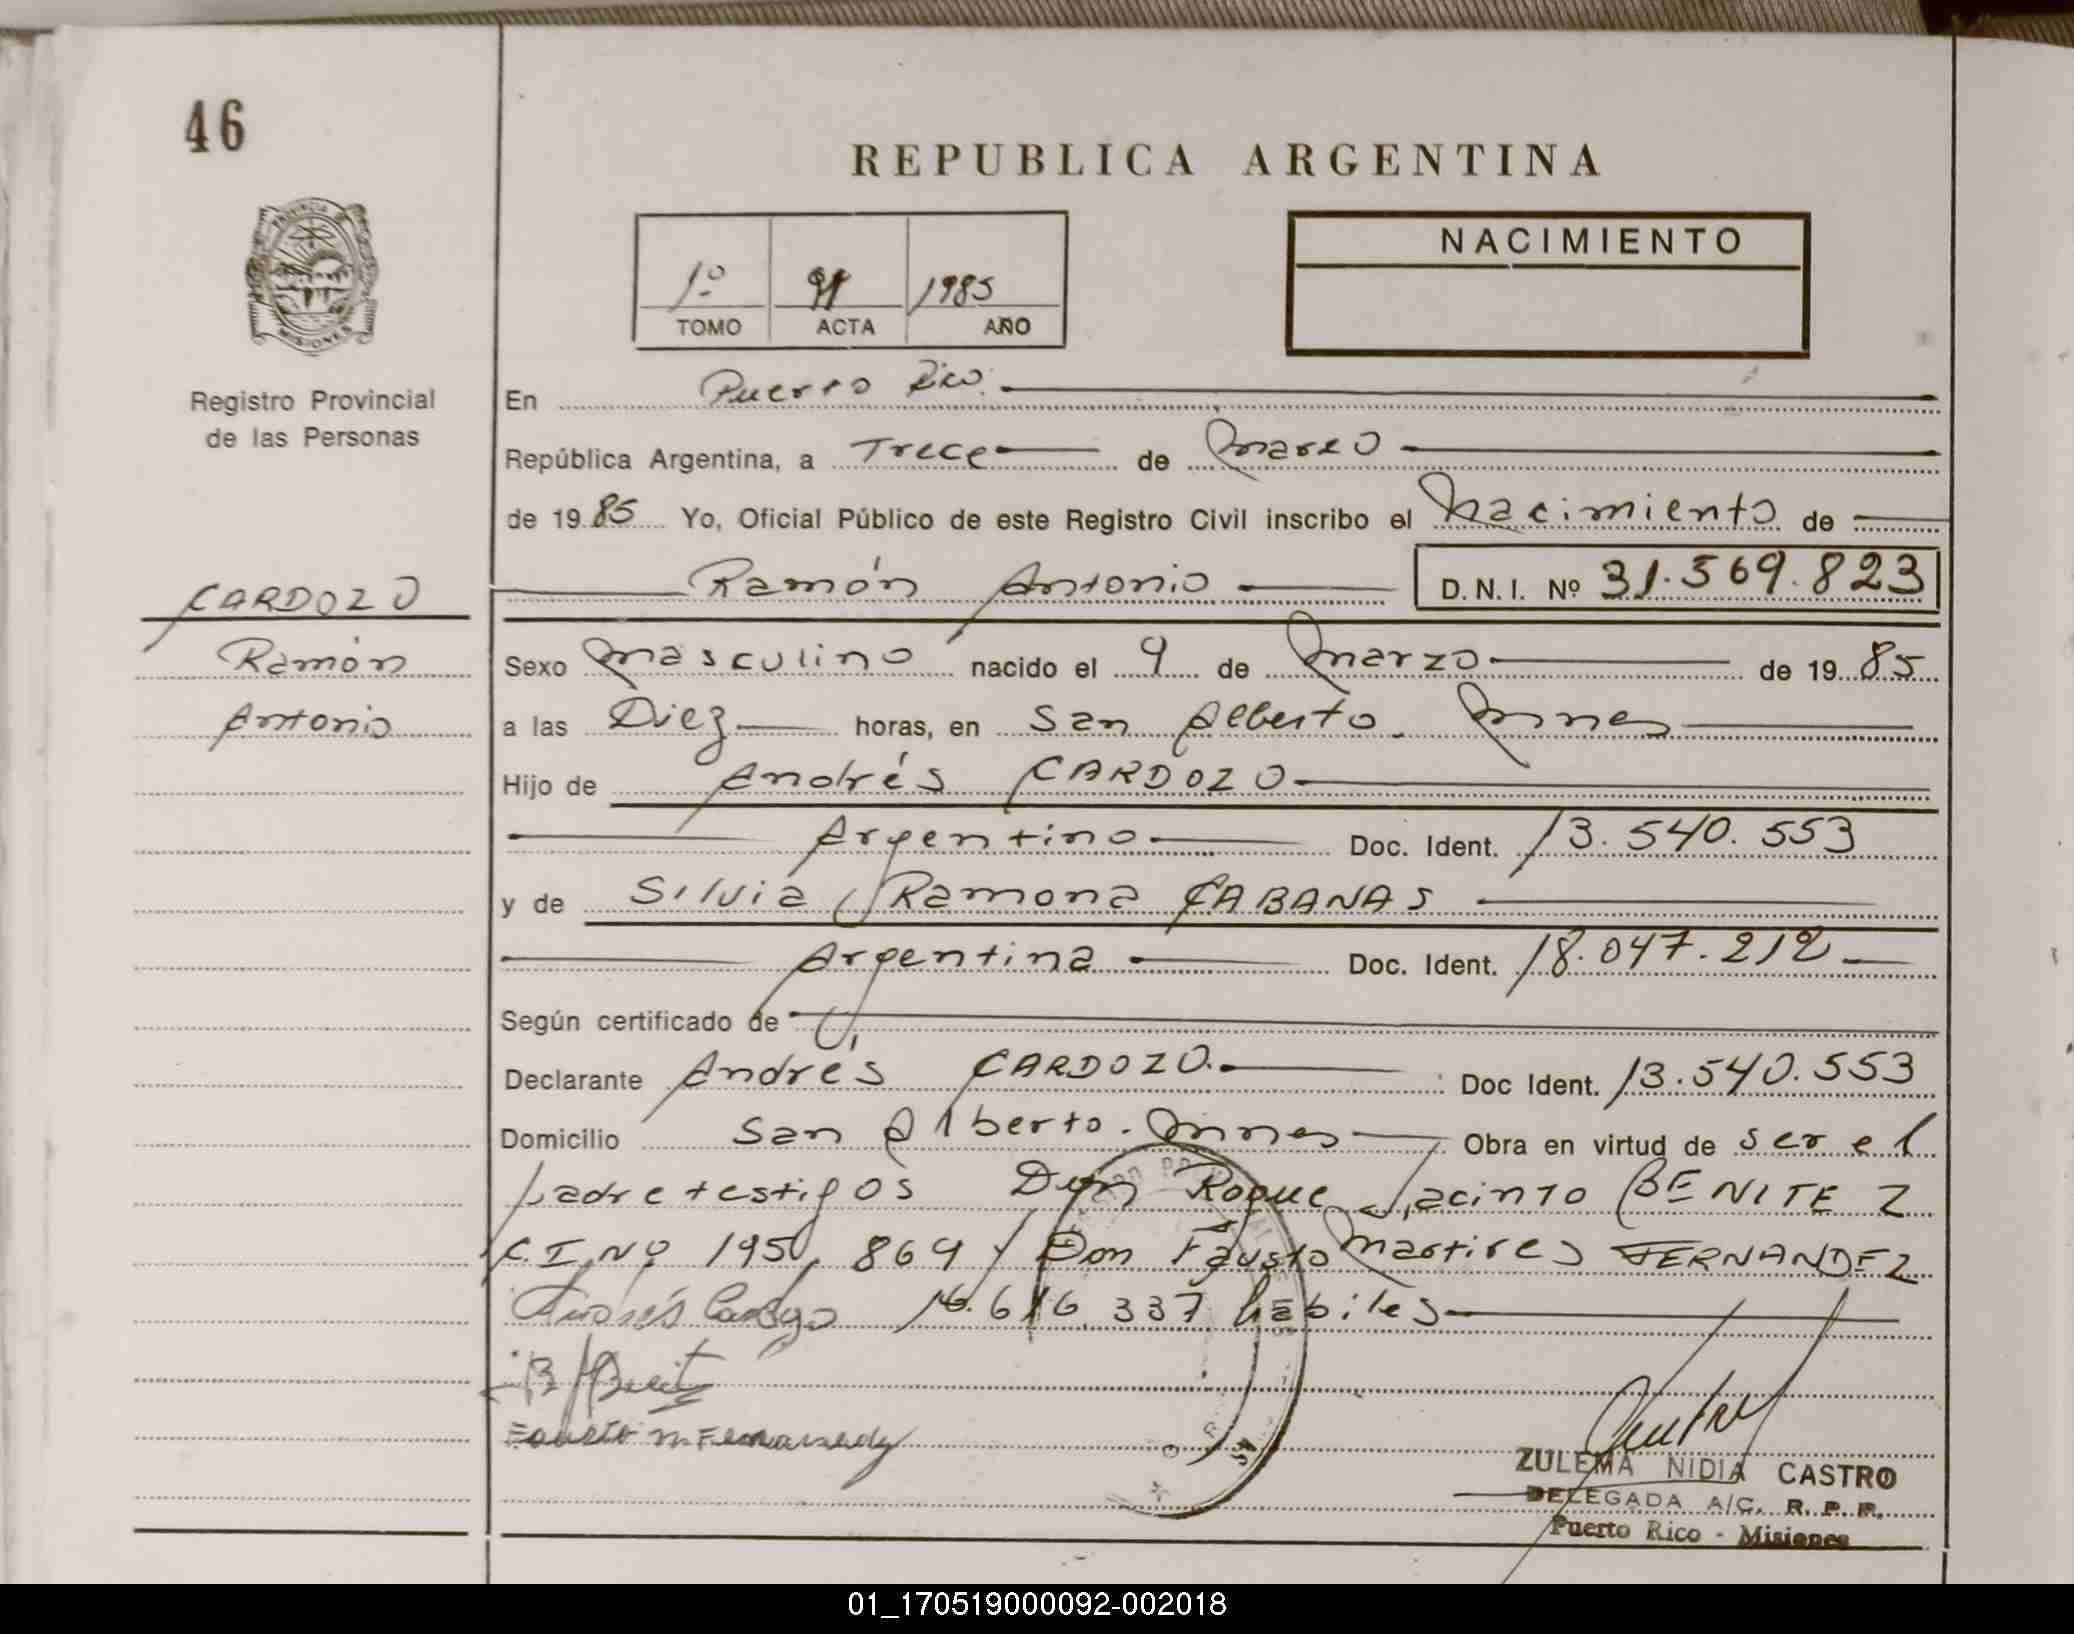 46
REPUBLICA ARGENTINA
PROVINCIA DE MISIONES
1º 91 1985
TOMO ACTA AÑO
NACIMIENTO
Registro Provincial
de las Personas
En Puerto Rico.
República Argentina, a Trece de Marzo
de 1985 Yo, Oficial Público de este Registro Civil inscribo el Nacimiento de
CARDOZO
Ramón
Antonio
Ramón Antonio D.N.I. Nº 31.569.823
Sexo Masculino nacido el 9 de Marzo de 1985
a las Diez horas, en San Alberto. Mnes
Hijo de Andrés CARDOZO
Argentino Doc. Ident. 13.540.553
y de Silvia Ramona CABANAS
Argentina Doc. Ident. 18.047.212
Según certificado de
Declarante Andrés CARDOZO. Doc Ident. 13.540.553
Domicilio San Alberto. Mnes Obra en virtud de ser el
padre testigos Don Roque Jacinto BENITEZ
C.I.Nº 195, 869 y Don Fausto Martires FERNANDEZ
Andrés Cardozo 16.616.337 habiles
Fausto M Fernandez
ZULEMA NIDIA CASTRO
DELEGADA A/C. R. P. P.
Puerto Rico - Misiones
01_170519000092-002018